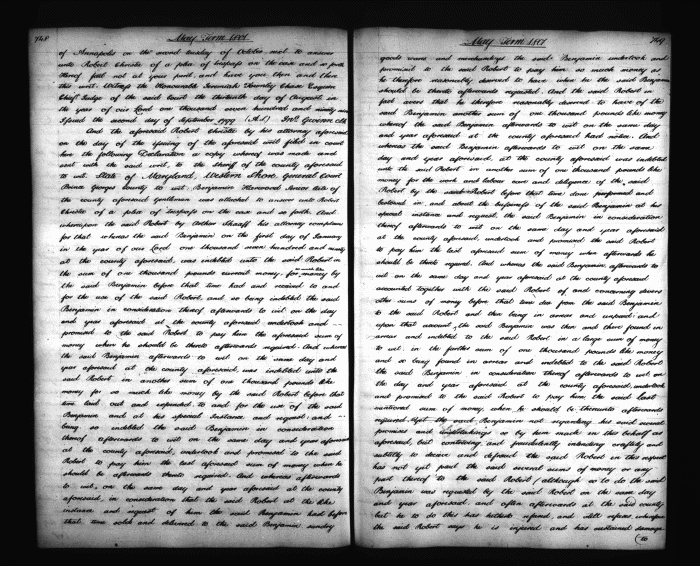 748
May Term 1801.
of Annapolis on the second tuesday of October next to answer
unto Robert Christie of a plea of trespass on the case and so forth
thereof fail not at your peril and have you then and there
this writ Witness the Honourable Jeremiah Townley Chase Esquire
Chief Judge of the said Court the day of August in
the year of our Lord one thousand seven hundred and ninety
Issued the second day of September 1799 Clk
And the aforesaid Robert Christie by his attorney aforesaid
on the day of the issuing of the aforesaid writ filed in court
here the following Declaration a copy whereof was made and
sent with the said writ, to the sheriff of the county aforesaid
to wit. State of Maryland, Western Shore, General Court
Prince Georges County to wit. Benjamin Harwood late of
the county aforesaid gentleman was attached to answer unto Robert
Christie of a plea of trespass on the case and so forth. And
whereupon the said Robert by Arthur Shaaff his attorney complains
for that whereas the said Benjamin on the first day of January
in the year of our Lord one thousand seven hundred and ninety
at the county aforesaid, was indebted unto the said Robert in
the sum of one thousand pounds current money, for money by
the said Benjamin before that time had and received to and
for the use of the said Robert, and so being indebted the said
Benjamin in consideration thereof afterwards to wit on the day
and year aforesaid at the county aforesaid undertook and
promised to the said Robert to pay him the aforesaid sum of
money when he should be thereto afterwards required. And whereas
the said Benjamin afterwards to wit on the same day and
year aforesaid at the county aforesaid, was indebted unto the
said Robert in another sum of one thousand pounds like
money for so much like money by the said Robert before that
time laid out and expended to and for the use of the said
Benjamin and at his special instance and request; and
being so indebted the said Benjamin in consideration
thereof afterwards to wit on the same day and year aforesaid
at the county aforesaid, undertook and promised to the said
Robert to pay him the last aforesaid sum of money when he
should be afterwards thereto required. And whereas afterwards
to wit, on the same day and year aforesaid at the county
aforesaid, in consideration that the said Robert at the like
instance and request of him the said Benjamin had before
that time sold and delivered to the said Benjamin sundry
May Term 1801
749
goods wares and merchandize the said Benjamin undertook and
promised to the said Robert to pay him so much money as
he therefore reasonably deserved to have when he the said Benjamin
should be thereto afterwards requested. And the said Robert in
fact avers that he therefore reasonably deserved to have of the
said Benjamin another sum of one thousand pounds like money
whereof the said Benjamin afterwards to wit on the same day
and year aforesaid at the county aforesaid had notice. And
whereas the said Benjamin afterwards to wit on the same
day and year aforesaid, at the county aforesaid was indebted
unto the said Robert in another sum of one thousand pounds like
money for the work and labour care and diligence of the said
Robert by the said Robert before that time done performed and
bestowed in and about the business of the said Benjamin at his
special instance and request, the said Benjamin in consideration
thereof afterwards to wit on the same day and year aforesaid
at the county aforesaid, undertook and promised the said Robert
to pay him the last aforesaid sum of money when afterwards he
should be thereto required. And whereas the said Benjamin afterwards to
wit on the same day and year aforesaid at the county aforesaid
accounted together with the said Robert of and concerning divers
other sums of money before that time due from the said Benjamin
to the said Robert and then being in arrear and unpaid: and
upon that account the said Benjamin was then and there found in
arrear and indebted to the said Robert in a large sum of money
to wit. in the further sum of one thousand pounds like money
and so being found in arrear and indebted to the said Robert
the said Benjamin in consideration thereof afterwards to wit on
the day and year aforesaid at the county aforesaid, undertook
and promised to the said Robert to pay him the said last
mentioned sum of money, when he should be thereunto afterwards
required. Yet the said Benjamin not regarding his said several
promises and undertakings so by him made in this behalf as
aforesaid, but contriving and fraudulently intending craftily and
subtilly to deceive and defraud the said Robert in this respect
has not yet paid the said several sums of money or any
part thereof to the said Robert (although so to do the said
Benjamin was requested by the said Robert on the same day
and year aforesaid and often afterwards at the said county
but he to do this has hitherto refused, and still refuses, wherefore
the said Robert says he is injured and has sustained damage
to